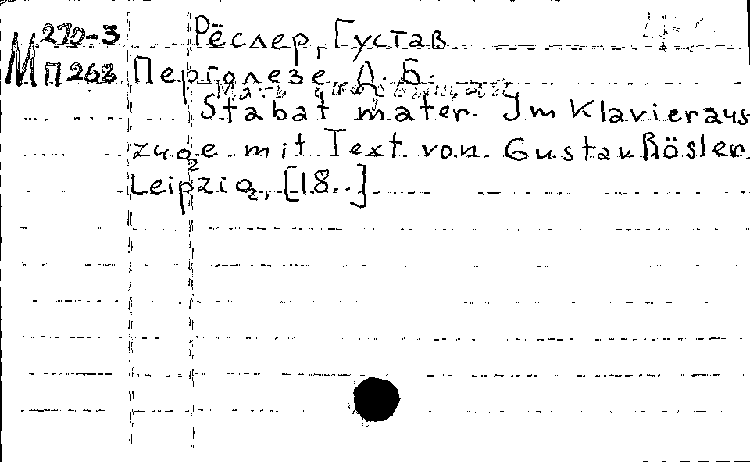 М 270-3 Рёслер, Густав
П 268 Перголезе, Д. Б.
Stabat mater. Im Klavieraus
zuge mit Text von Gustav Rösler.
Leipzig, [18..]